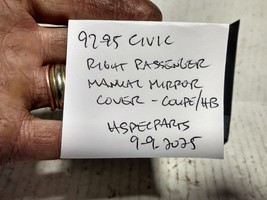 92-95 CIVIC
RIGHT PASSENGER
MANUAL MIRROR
COVER - COUPE/HB
HSPECPARTS
9-9-2025